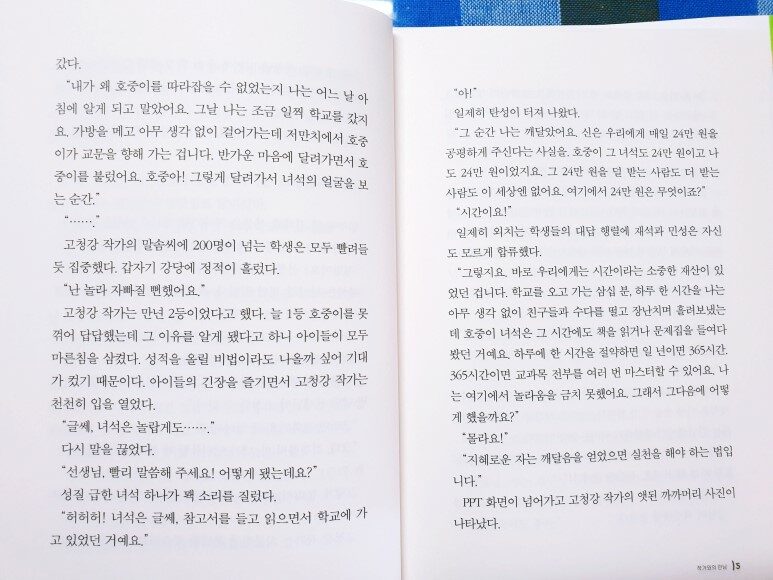 갔다.
“내가 왜 호중이를 따라잡을 수 없었는지 나는 어느 날 아
침에 알게 되고 말았어요. 그날 나는 조금 일찍 학교를 갔지
요. 가방을 메고 아무 생각 없이 걸어가는데 저만치에서 호중
이가 교문을 향해 가는 겁니다. 반가운 마음에 달려가면서 호
중이를 불렀어요. 호중아! 그렇게 달려가서 녀석의 얼굴을 보
는 순간.”
“…….”
고청강 작가의 말솜씨에 200명이 넘는 학생은 모두 빨려들
듯 집중했다. 갑자기 강당에 정적이 흘렀다.
“난 놀라 자빠질 뻔했어요.”
고청강 작가는 만년 2등이었다고 했다. 늘 1등 호중이를 못
꺾어 답답했는데 그 이유를 알게 됐다고 하니 아이들이 모두
마른침을 삼켰다. 성적을 올릴 비법이라도 나올까 싶어 기대
가 컸기 때문이다. 아이들의 긴장을 즐기면서 고청강 작가는
천천히 입을 열었다.
“글쎄, 녀석은 놀랍게도…….”
다시 말을 끊었다.
“선생님, 빨리 말씀해 주세요! 어떻게 됐는데요?”
성질 급한 녀석 하나가 꽥 소리를 질렀다.
“허허허! 녀석은 글쎄, 참고서를 들고 읽으면서 학교에 가
고 있었던 거예요.”
“아!”
일제히 탄성이 터져 나왔다.
“그 순간 나는 깨달았어요. 신은 우리에게 매일 24만 원을
공평하게 주신다는 사실을. 호중이 그 녀석도 24만 원이고 나
도 24만 원이었지요. 그 24만 원을 덜 받는 사람도 더 받는
사람도 이 세상엔 없어요. 여기에서 24만 원은 무엇이죠?”
“시간이요!”
일제히 외치는 학생들의 대답 행렬에 재석과 민성은 자신
도 모르게 합류했다.
“그렇지요. 바로 우리에게는 시간이라는 소중한 재산이 있
었던 겁니다. 학교를 오고 가는 삼십 분, 하루 한 시간을 나는
아무 생각 없이 친구들과 수다를 떨고 장난치며 흘려보냈는
데 호중이 녀석은 그 시간에도 책을 읽거나 문제집을 들여다
봤던 거예요. 하루에 한 시간을 절약하면 일 년이면 365시간.
365시간이면 교과목 전부를 여러 번 마스터할 수 있어요. 나
는 여기에서 놀라움을 금치 못했어요. 그래서 그다음에 어떻
게 했을까요?”
“몰라요!”
“지혜로운 자는 깨달음을 얻었으면 실천을 해야 하는 법입
니다.”
PPT 화면이 넘어가고 고청강 작가의 앳된 까까머리 사진이
나타났다.
작가와의 만남 15